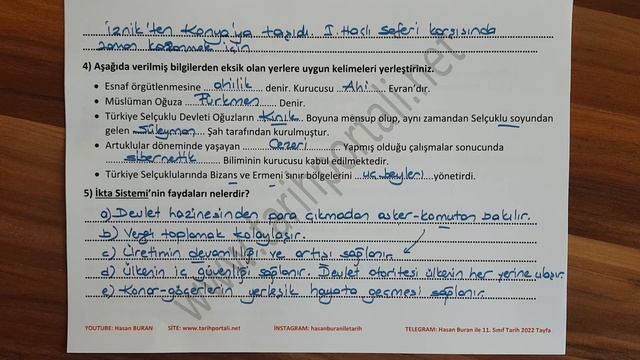 İznik'ten Konya'ya taşıdı. I. Haçlı Seferi karşısında
zaman kazanmak için
4) Aşağıda verilmiş bilgilerden eksik olan yerlere uygun kelimeleri yerleştiriniz.
• Esnaf örgütlenmesine ahilik denir. Kurucusu Ahi Evran'dır.
• Müslüman Oğuza Türkmen Denir.
• Türkiye Selçuklu Devleti Oğuzların Kınık Boyuna mensup olup, aynı zamandan Selçuklu soyundan
gelen Süleyman Şah tarafından kurulmuştur.
• Artuklular döneminde yaşayan Cezeri Yapmış olduğu çalışmalar sonucunda
sibernetik Biliminin kurucusu kabul edilmektedir.
• Türkiye Selçuklularında Bizans ve Ermeni sınır bölgelerini uç beyleri yönetirdi.
5) İkta Sistemi'nin faydaları nelerdir?
a) Devlet hazinesinden para çıkmadan asker-komutan bakılır.
b) Vergi toplamak kolaylaşır.
c) Üretimin devamlılığı ve artışı sağlanır.
d) Ülkenin iç güvenliği sağlanır. Devlet otoritesi ülkenin her yerine ulaşır.
e) Konar-göçerlerin yerleşik hayata geçmesi sağlanır.
www.tarihportali.net
YOUTUBE: Hasan BURAN SİTE: www.tarihportali.net İNSTAGRAM: hasanburaniletarih TELEGRAM: Hasan Buran ile 11. Sınıf Tarih 2022 Tayfa